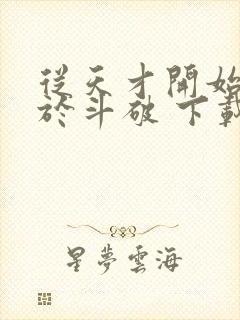 從天才開始
於斗破 下載
星夢雲海